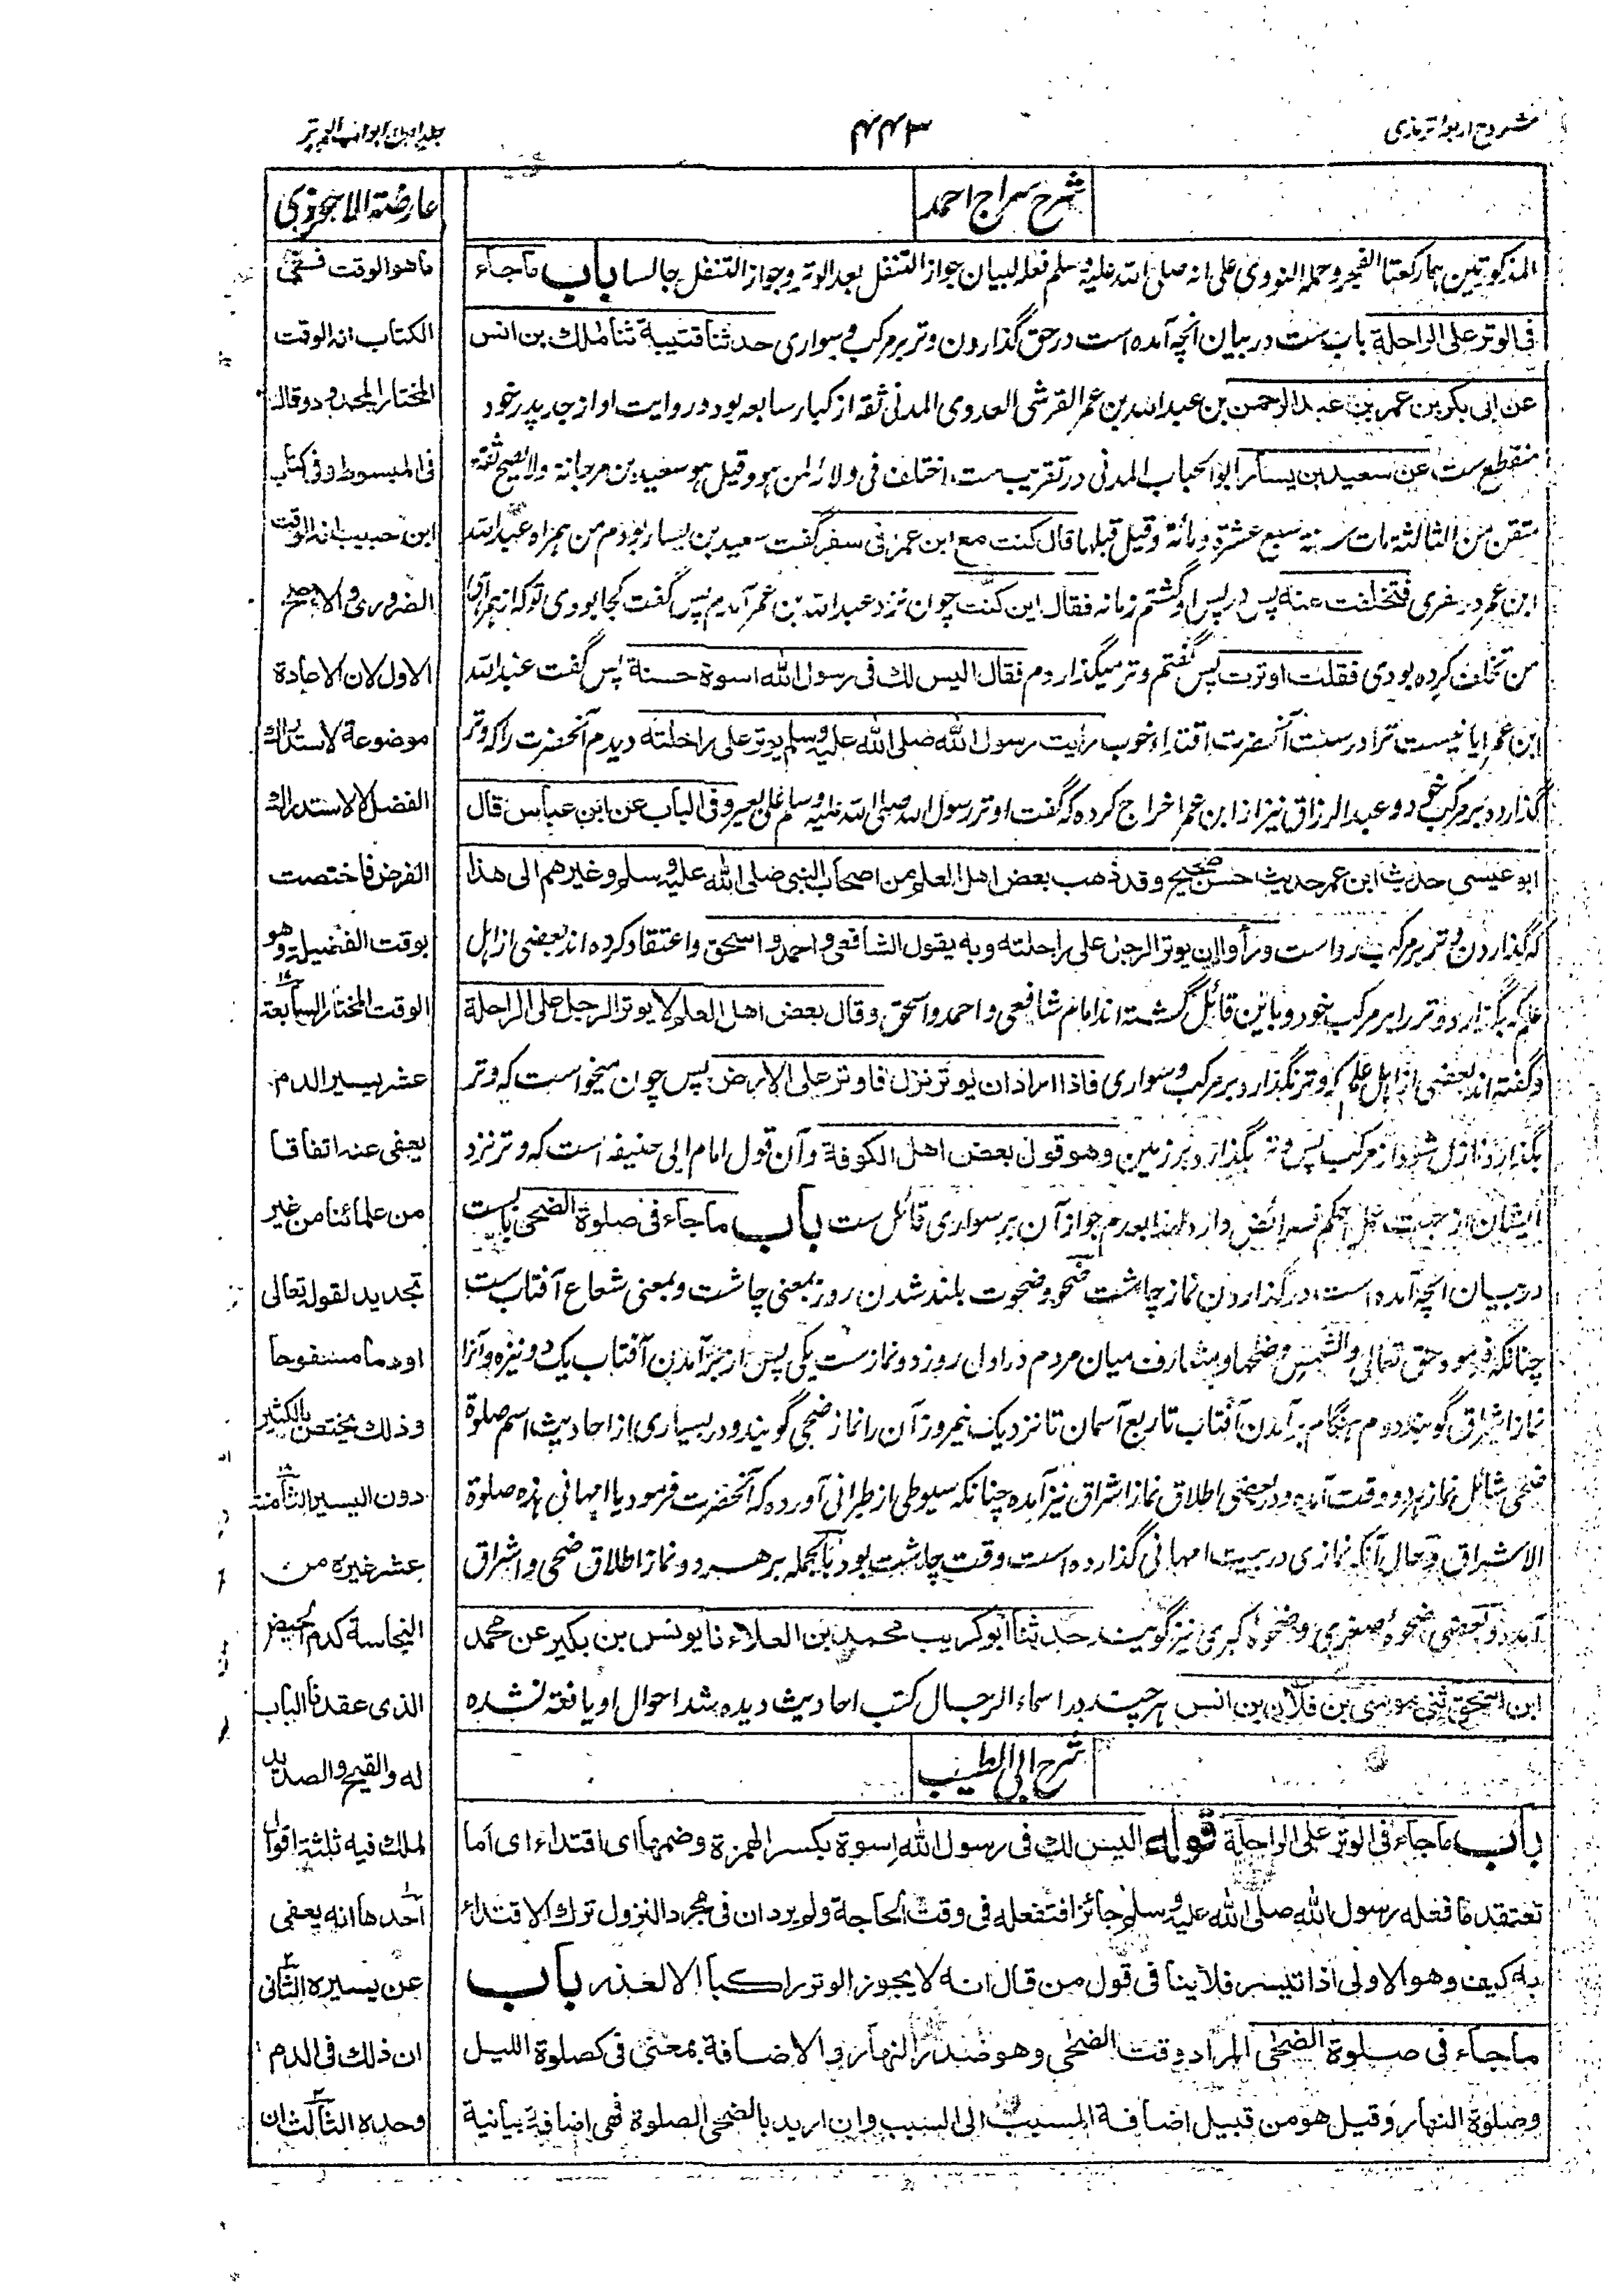 شروح اربعة ترمذی
۴۴۳
جلد ابواب الوتر
شرح سراج احمد
المذكورتين هما ركعتا الفجر وحمله النووی علی انه صلی الله علیه وسلم فعله لبیان جواز التنفل بعد الوتر وجواز التنفل جالسا باب ما جاء
فی الوتر علی الراحلة باب ست در بیان آنچه آمده است در حق گذاردن وتر بر مرکب و سواری حدثنا قتیبة ثنا مالك بن انس
عن ابی بكر بن عمر بن عبد الرحمن بن عبد الله بن عمر القرشی العدوی المدنی ثقه از کبار سابعه بود و روایت او از جد پدر خود
منقطع ست عن سعید بن یسار ابو الحباب المدنی در تقریب ست اختلف فی ولائه لمن هو وقیل هو سعید بن مرجانة ولا یصح ثقة
متقن من الثالثة مات سنة سبع عشرة ومائة وقیل قبلها قال كنت مع ابن عمر فی سفر گفت سعید بن یسار بودم من همراه عبد الله
ابن عمر در سفری فتخلفت عنه پس در پس او گشتم زمانه فقال این كنت چون نزد عبد الله بن عمر آمدم پس گفت کجا بودی تو که از همراهی
من تخلف کرده بودی فقلت اوترت پس گفتم وتر میگذاردم فقال الیس لك فی رسول الله اسوة حسنة پس گفت عبد الله
ابن عمر آیا نیست ترا در سنت آنحضرت اقتداء خوب رأیت رسول الله صلی الله علیه وسلم یوتر علی راحلته دیدم آنحضرت را که وتر
گذارد بر مرکب خود و عبد الرزاق نیز از ابن عمر اخراج کرده که گفت اوتر رسول الله صلی الله علیه وسلم علی بعیر وفی الباب عن ابن عباس قال
ابو عیسی حدیث ابن عمر حدیث حسن صحیح وقد ذهب بعض اهل العلم من اصحاب النبی صلی الله علیه وسلم وغیرهم الی هذا
که گذاردن وتر بر مرکب روا است ورأوا ان یوتر الرجل علی راحلته وبه یقول الشافعی واحمد واسحق واعتقاد کرده اند بعضی از اهل
علم که بگذارد وتر را بر مرکب خود و باین قائل گشته اند امام شافعی و احمد و اسحق وقال بعض اهل العلم لا یوتر الرجل علی الراحلة
و گفته اند بعضی از اهل علم که وتر نگذارد بر مرکب و سواری فاذا اراد ان یوتر نزل فاوتر علی الارض پس چون میخواست که وتر
بگذارد نازل شود از مرکب پس وتر بگذارد بر زمین وهو قول بعض اهل الكوفة وآن قول امام ابی حنیفه است که وتر نزد
ایشان از جهت حکم فرائض دارد لهذا بعدم جواز آن بر سواری قائل ست باب ما جاء فی صلوة الضحی باب ست
در بیان آنچه آمده است در گذاردن نماز چاشت ضحو وضحوت بلند شدن روز بمعنی چاشت و بمعنی شعاع آفتاب ست
چنانکه فرمود حق تعالی والشمس وضحها و متعارف میان مردم در اول روز دو نماز ست یکی پس از برآمدن آفتاب یک دو نیزه و آنرا
نماز اشراق گویند و دوم هنگام برآمدن آفتاب تا ربع آسمان تا نزدیک نیمروز آن را نماز ضحی گویند و در بسیاری از احادیث اسم صلوة
ضحی شامل نماز هر دو وقت آمده و در بعضی اطلاق نماز اشراق نیز آمده چنانکه سیوطی از طبرانی آورده که آنحضرت فرمود یا ام هانی هذه صلوة
الاشراق و حال آنکه نمازی در بیت ام هانی گذارده است وقت چاشت بود بالجمله بر هر دو نماز اطلاق ضحی و اشراق
آمده و بعضی ضحوۀ صغری و ضحوۀ کبری نیز گویند حدثنا ابو كریب محمد بن العلاء نا یونس بن بكیر عن محمد
ابن اسحق ثنی موسی بن فلان بن انس هر چند در اسماء الرجال کتب احادیث دیده شد احوال او یافته نشده
شرح ابی الطیب
باب ما جاء فی الوتر علی الراحلة قوله الیس لك فی رسول الله اسوة بكسر الهمزة وضمها ای اقتداء ای اما
تعتقد ما فعله رسول الله صلی الله علیه وسلم جائزا فتفعله فی وقت الحاجة ولم یرد ان فی مجرد النزول ترك الاقتداء
به كیف وهو الاولی اذا تیسر فلا ینافی قول من قال انه لا یجوز الوتر راكبا الا لعذر باب
ما جاء فی صلوة الضحی المراد وقت الضحی وهو صدر النهار والاضافة بمعنی فی كصلوة اللیل
وصلوة النهار وقیل هو من قبیل اضافة المسبب الی السبب وان ارید بالضحی الصلوة فهی اضافة بیانیة
عارضة الاحوذی
ما هو الوقت ففی
الكتاب انه الوقت
المختار المحدود وقال
فی المبسوط وفی كتاب
ابن حبیب انه الوقت
الضروری والاصح
الاول لان الاعادة
موضوعة لاستدراك
الفضل لا لاستدراك
الفرض فاختصت
بوقت الفضیلة وهو
الوقت المختار السابعة
عشر یسیر الدم
یعفی عنه اتفاقا
من علمائنا من غیر
تجدید لقوله تعالی
او دما مسفوحا
وذلك یختص بالكثیر
دون الیسیر الثامنة
عشر غیره من
النجاسة كدم الحیض
الذی عقدنا الباب
له والقیح والصدید
لملك فیه ثلثة اقوال
احدها انه یعفی
عن یسیره الثانی
ان ذلك فی الدم
وحده الثالث ان